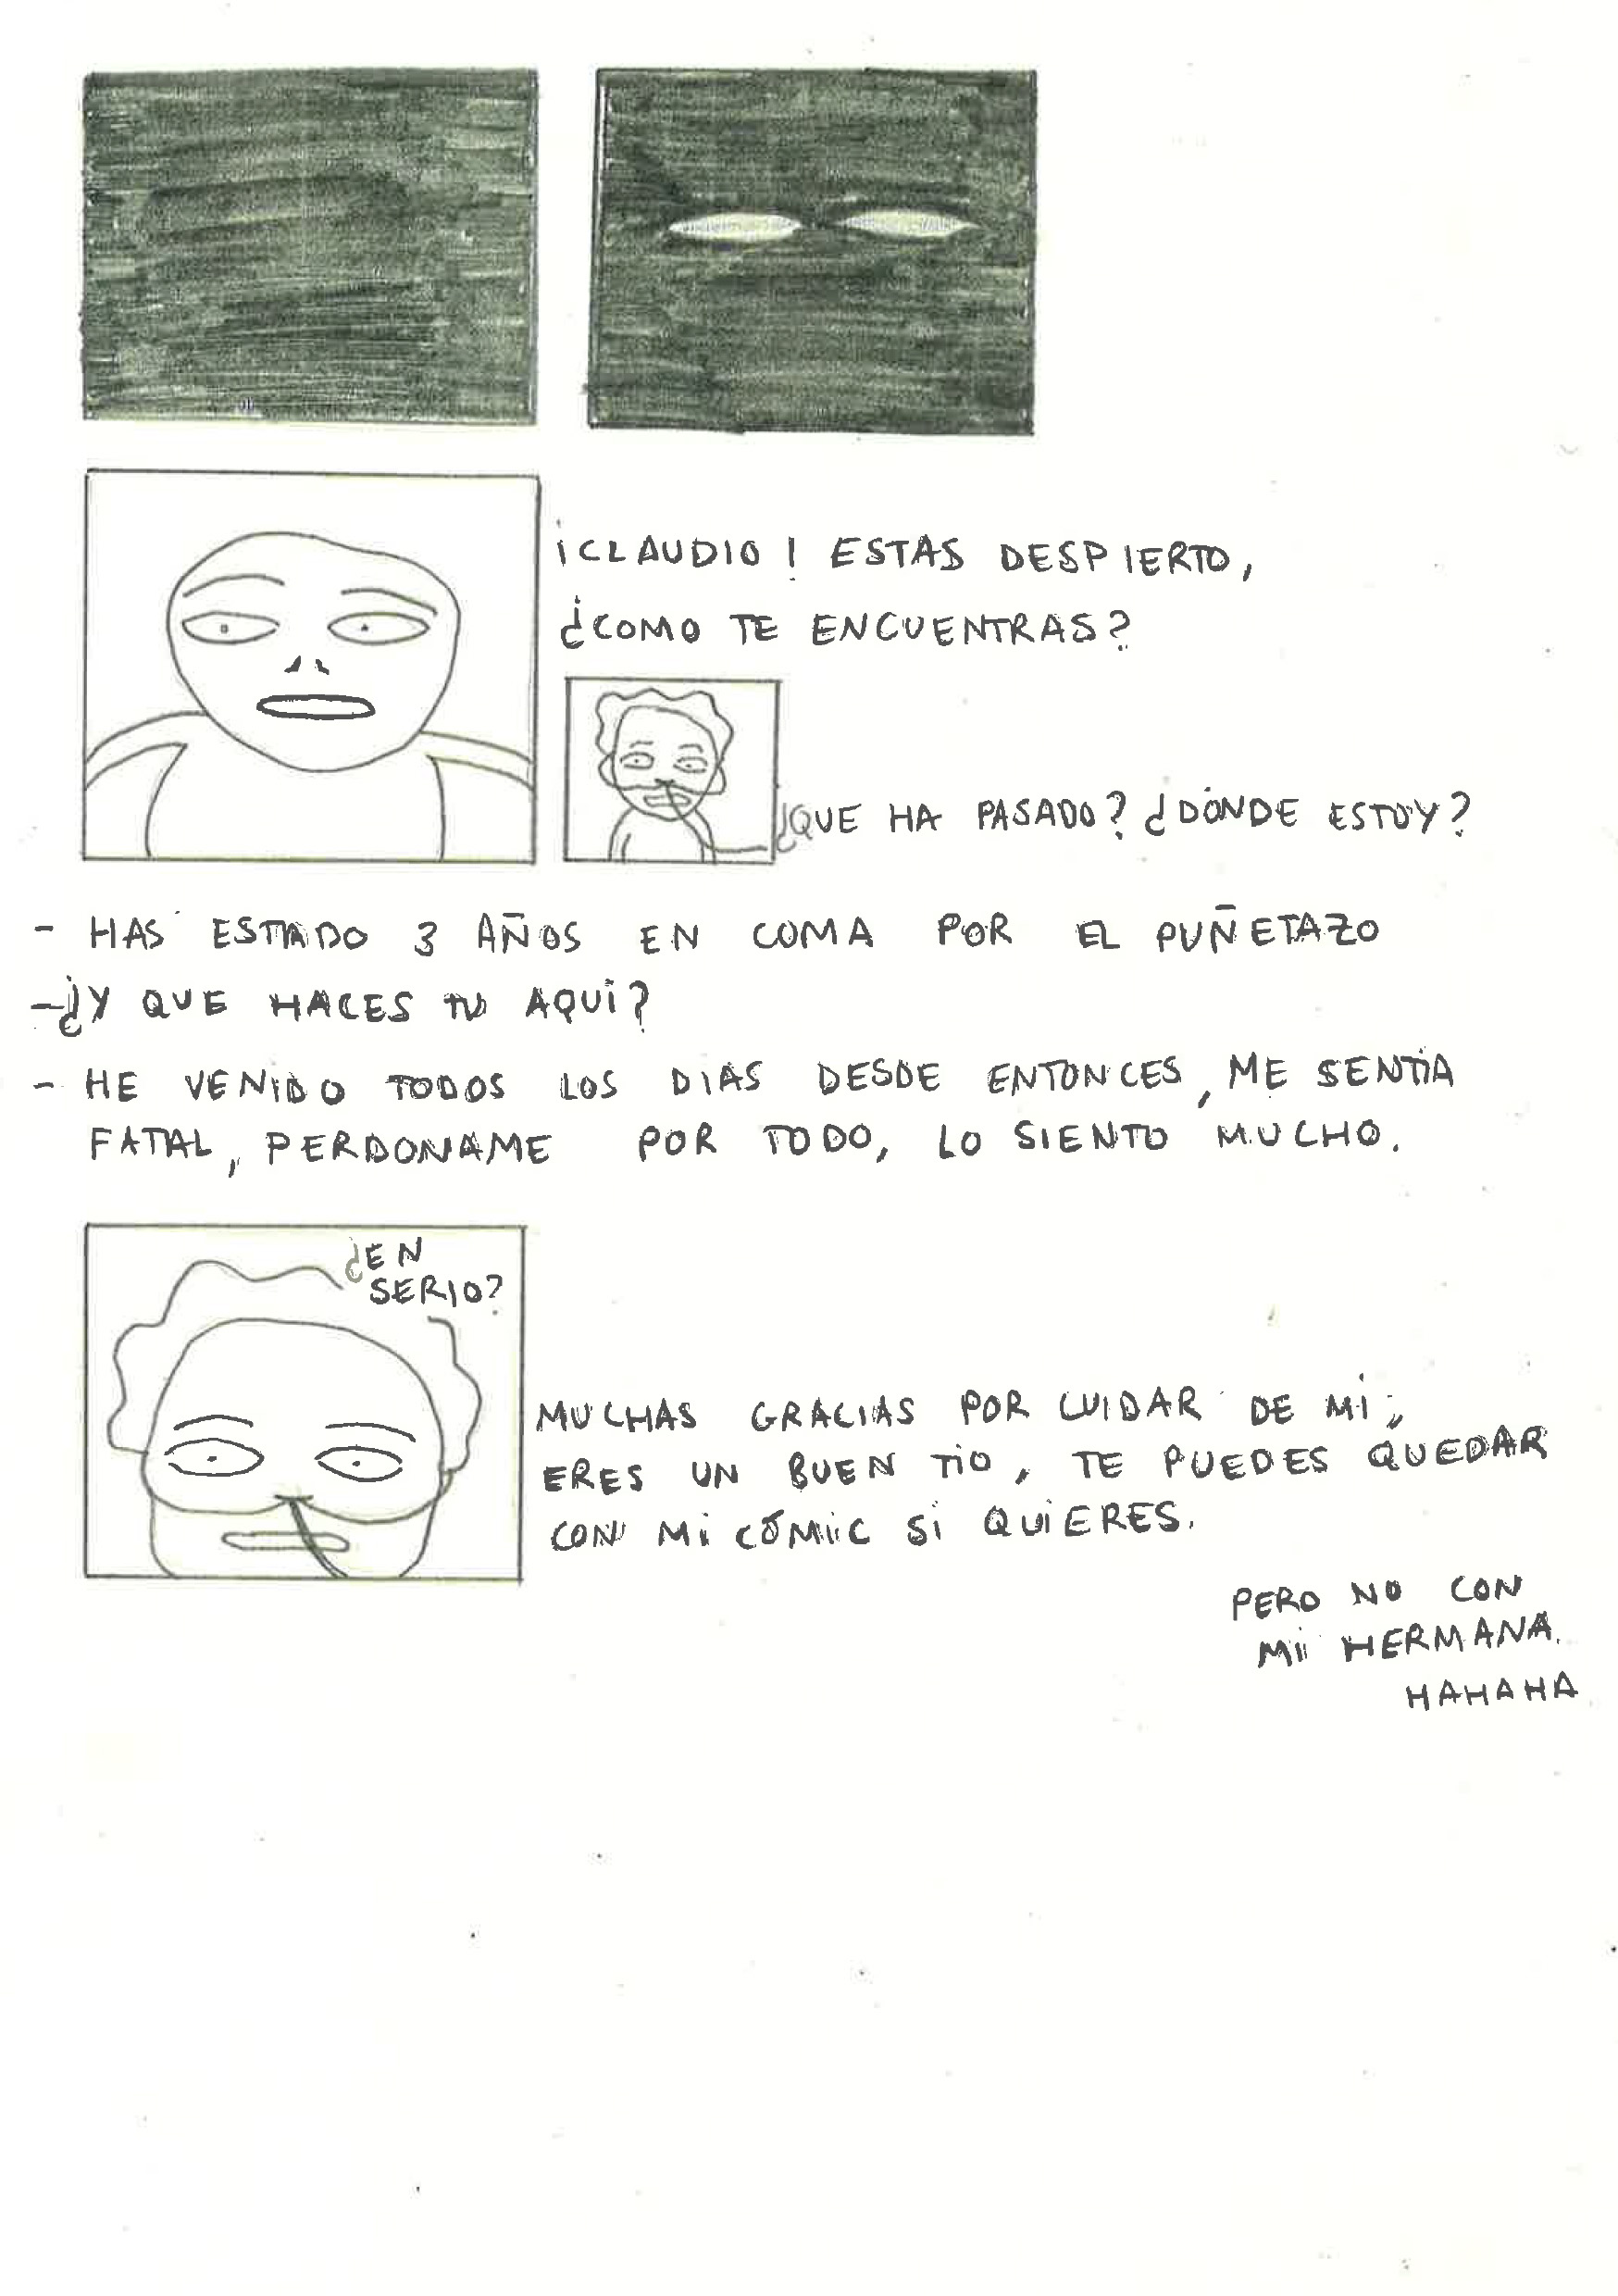 ¡CLAUDIO! ESTAS DESPIERTO,
¿COMO TE ENCUENTRAS?
¿QUE HA PASADO? ¿DÓNDE ESTOY?
- HAS ESTADO 3 AÑOS EN COMA POR EL PUÑETAZO
-¿Y QUE HACES TU AQUI?
- HE VENIDO TODOS LOS DIAS DESDE ENTONCES, ME SENTIA
FATAL, PERDONAME POR TODO, LO SIENTO MUCHO.
¿EN
SERIO?
MUCHAS GRACIAS POR CUIDAR DE MI,
ERES UN BUEN TIO, TE PUEDES QUEDAR
CON MI CÓMIC SI QUIERES.
PERO NO CON
MI HERMANA.
HAHAHA